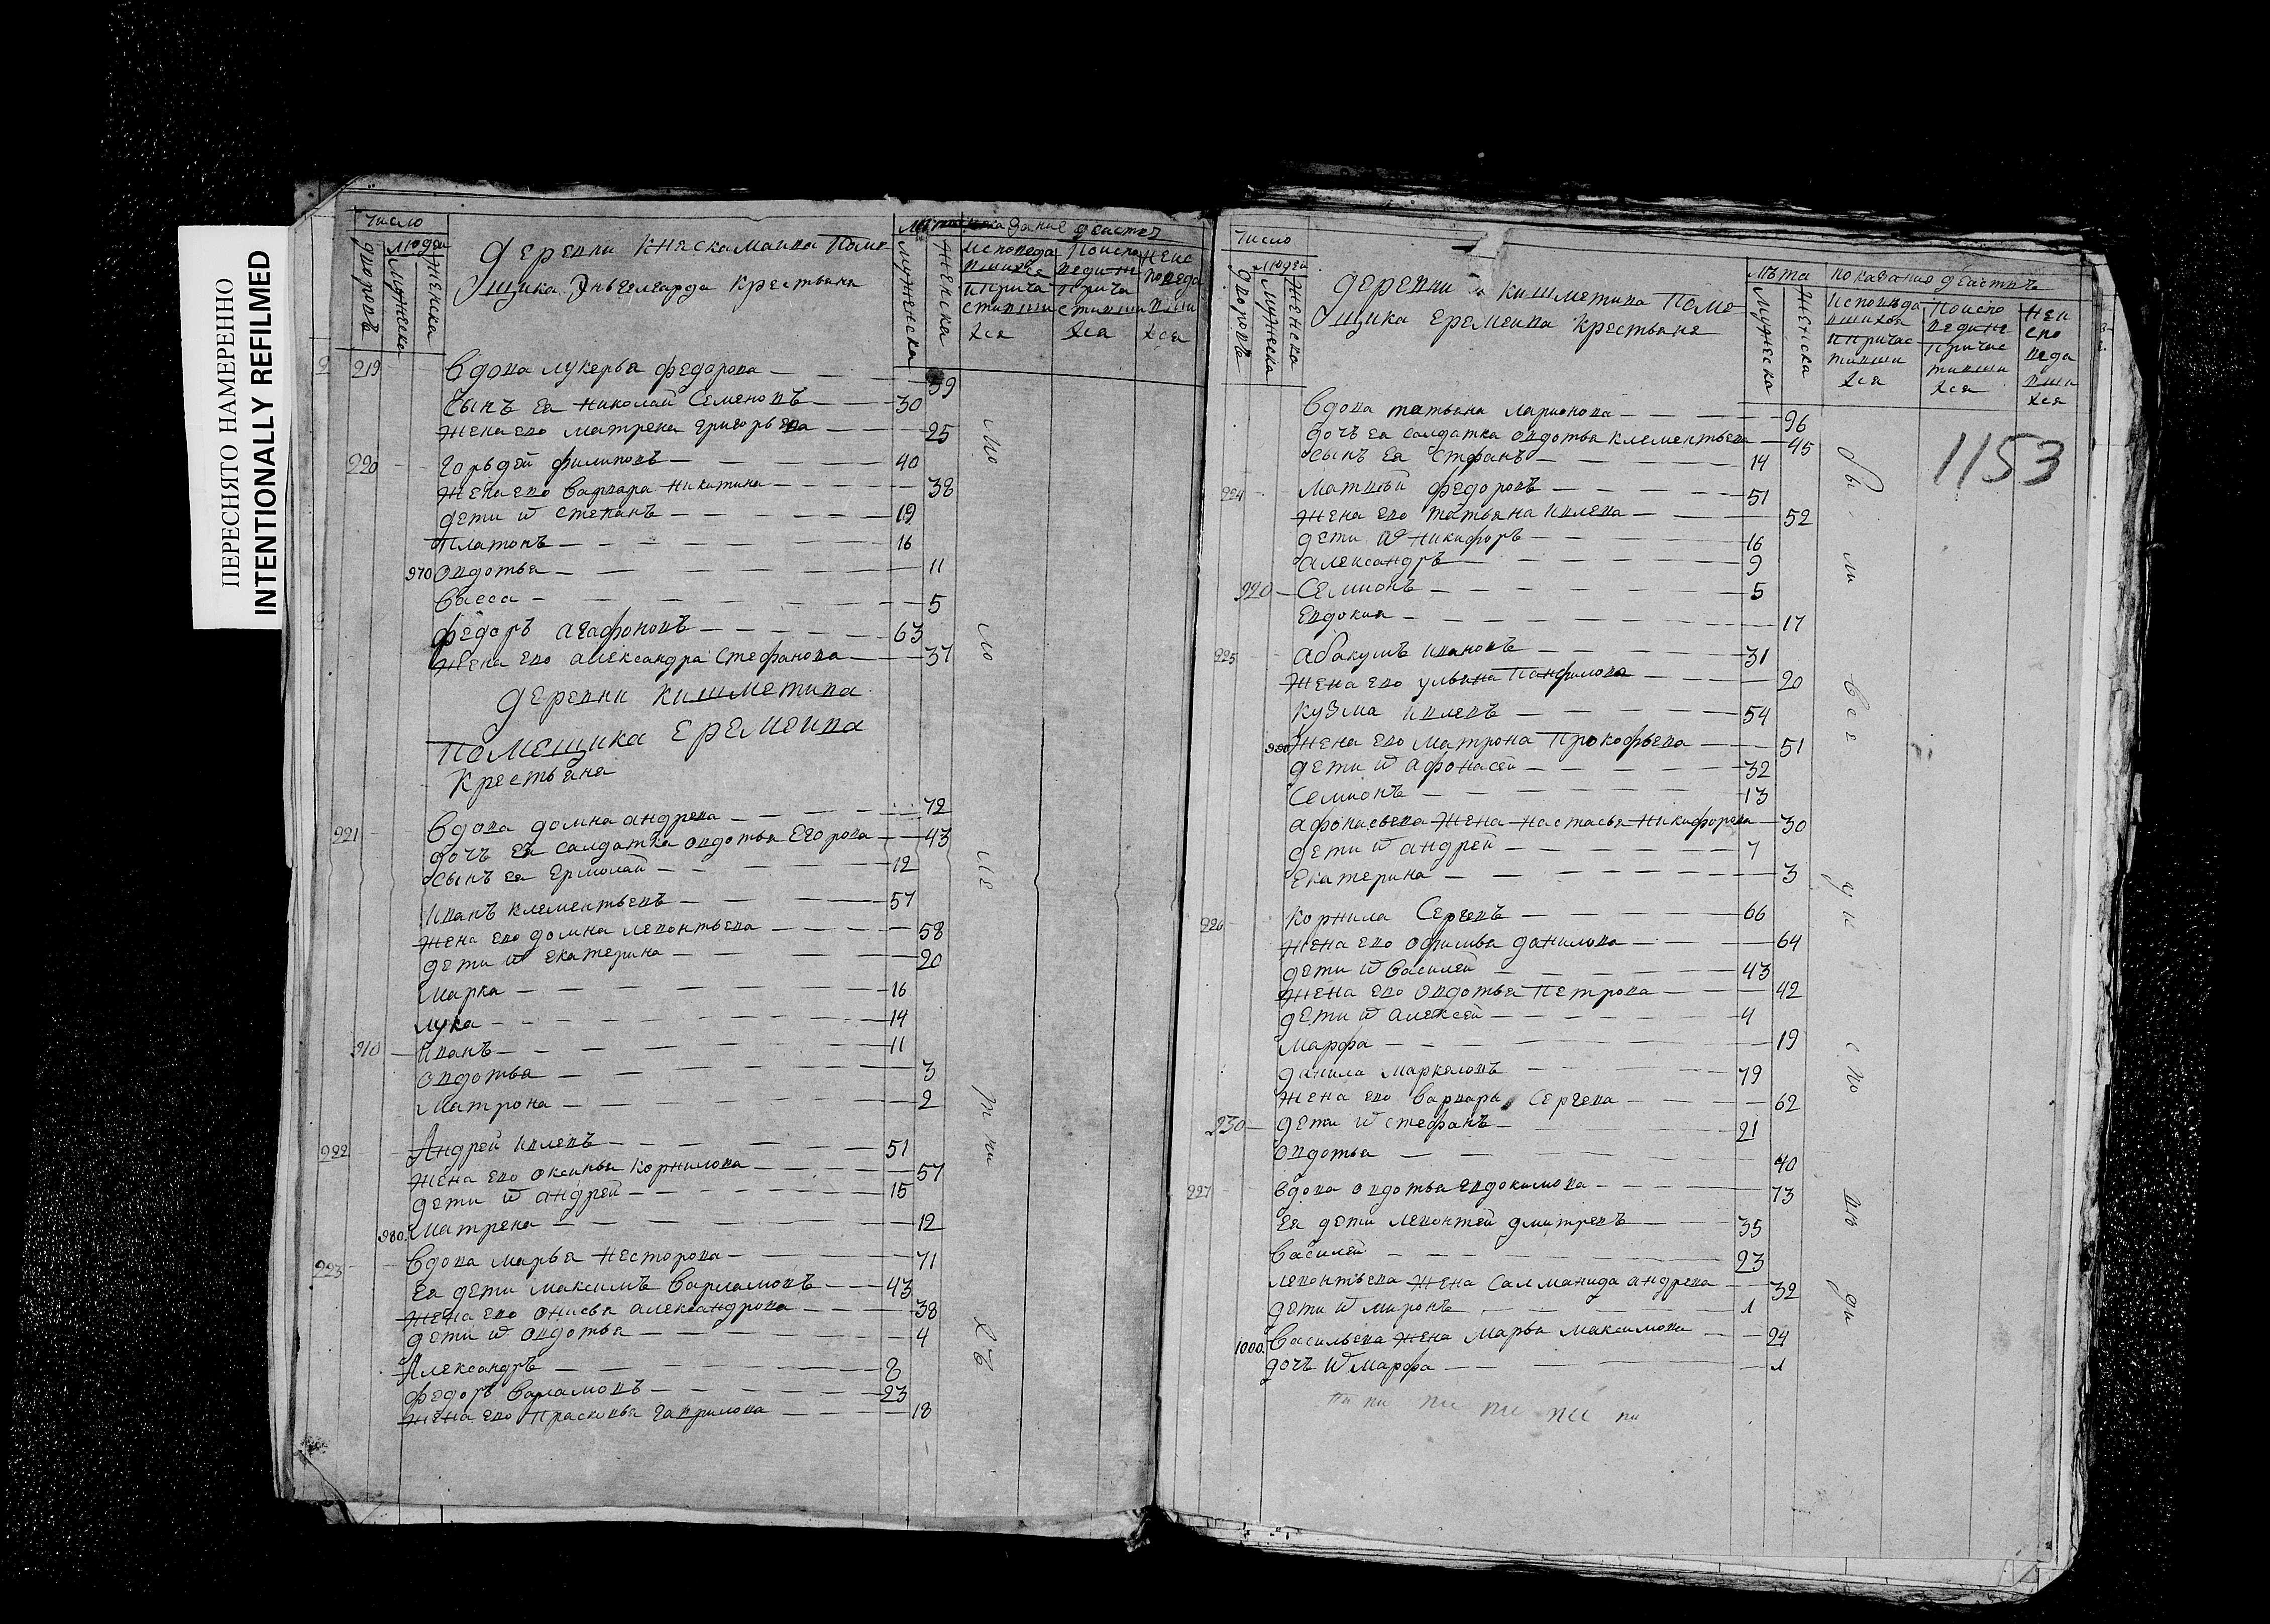 ПЕРЕСНЯТО НАМЕРЕННО
INTENTIONALLY REFILMED
число
дворовъ
людей
мужеска
женска
деревни Княскамаива Поме
щика Энгелгарда Крестьяна
мужеска
женска
исповеда
вшихся
и прича
стивши
хся
поиспо
веди не
прича
стивши
хся
неис
поведа
вши
хся
219 вдова лукерья федорова 59
сынъ ея николай Семеновъ 30
жена ево матрена григорьева 25
220 гордей филиповъ 40
жена ево варвара никитина 38
дети ѿ степанъ 19
платонъ 16
970 овдотья 11
васса 5
федоръ агафоновъ 63
жена ево александра стефанова 37
деревни кишметива
помещика еремеива
крестьяна
221 вдова домна андрева 72
дочь ея салдатка овдотья Егорова 43
сынъ ея ермолай 12
иванъ клементьевъ 57
жена ево домна левонтьева 58
дети ѿ екатерина 20
марка 16
лука 14
910 иванъ 11
овдотья 3
матрона 2
222 Андрей ивлевъ 51
жена ево оксинья корнилова 57
дети ѿ андрей 15
980 матрена 12
223 вдова марья несторова 71
ея дети максимъ варламовъ 43
жена ево онисья александрова 38
дети ѿ овдотья 4
Александръ 8
федоръ варламовъ 23
жена ево прасковья гаврилова 18
число
дворовъ
людей
мужеска
женска
деревни кишметива Поме
щика еремеива крестьяне
лѣта
мужеска
женска
показание действъ
исповѣда
вшихся
и причас
тивши
хся
поиспо
веди не
причас
тивши
хся
неи
спо
веда
вши
хся
1153
вдова татьяна ларионова 96
дочь ея салдатка овдотья клементьева 45
сынъ ея стефанъ 14
224 матвѣй федоровъ 51
жена ево татьяна ивлева 52
дети ѿ никифоръ 16
александръ 9
220 семионъ 5
евдокия 17
225 абакумъ ивановъ 31
жена ево ульяна панфилова 20
кузма ивлевъ 54
990 жена ево матрона прокофьева 51
дети ѿ афонасей 32
семионъ 13
афонасьева жена настасья никифорова 30
дети ѿ андрей 7
екатерина 3
226 корнила сергевъ 66
жена ево офимья данилова 64
дети ѿ василей 43
жена ево овдотья петрова 42
дети ѿ алексей 4
марфа 19
данила маркеловъ 79
жена ево варвара сергева 62
230 дети ѿ стефанъ 21
овдотья 40
227 вдова овдотья евдокимова 73
ея дети левонтей дмитревъ 35
василей 23
левонтьева жена салманида андрева 32
дети ѿ миронъ 1
1000 васильева жена марья максимова 24
дочь ѿ марфа 1
пи пи пи пи пи пи